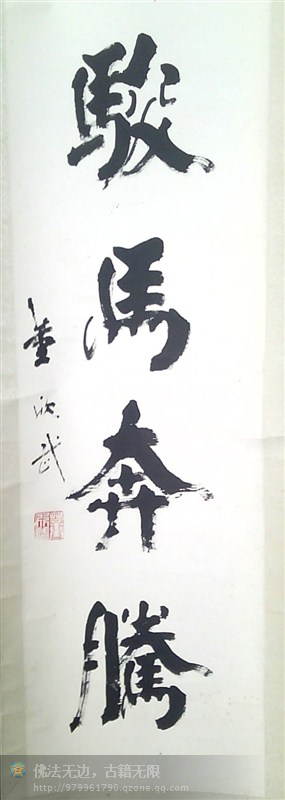 駿馬奔騰
董欣武
佛法无边，古籍无限
http://979961790.qzone.qq.com